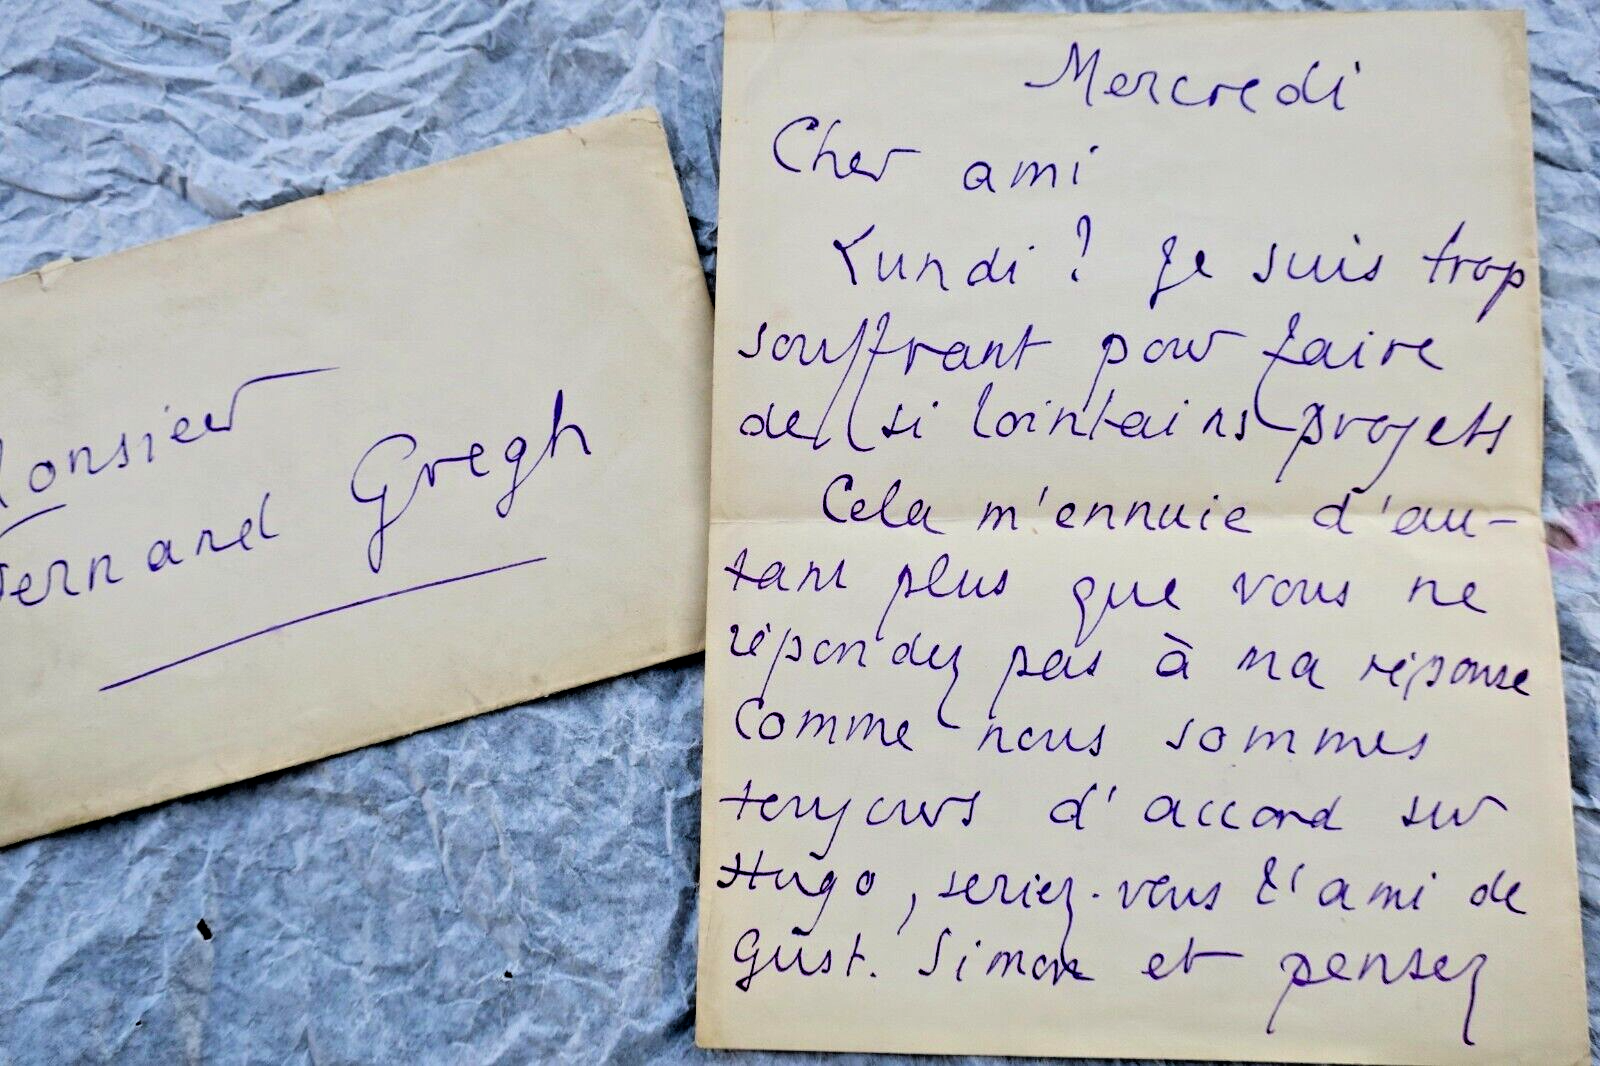 Monsieur
Fernand Gregh
Mercredi
Cher ami
Lundi ? Je suis trop
souffrant pour faire
de si lointains projets
Cela m'ennuie d'au-
tant plus que vous ne
répondez pas à ma réponse
Comme nous sommes
toujours d'accord sur
Hugo, seriez-vous l'ami de
Gust. Simon et pensez